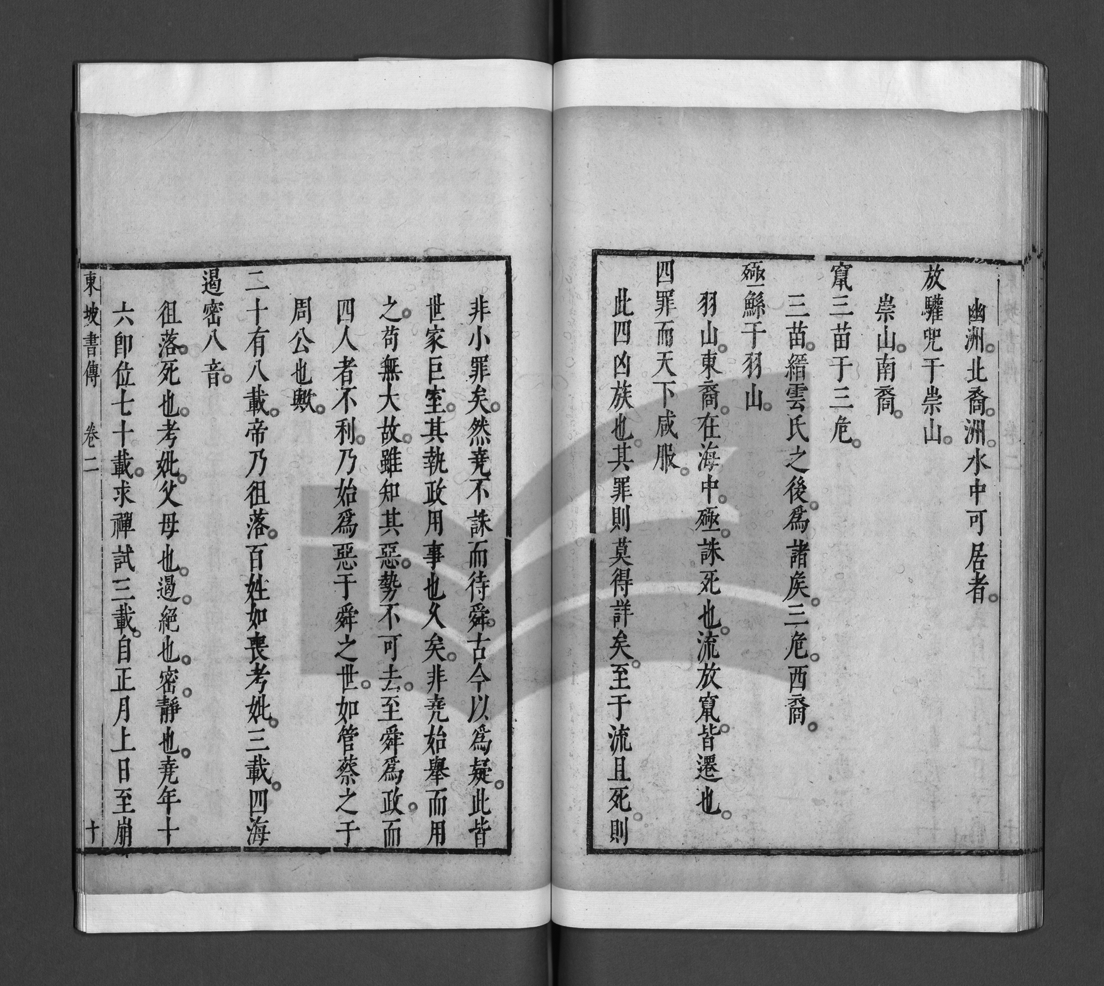 幽洲。北裔。洲。水中可居者。
放驩兜于崇山。
崇山。南裔。
竄三苗于三危。
三苗。縉雲氏之後。爲諸矦。三危。西裔。
殛鯀于羽山。
羽山。東裔。在海中。殛。誅死也。流放竄。皆遷也。
四罪而天下咸服。
此四凶族也。其罪則莫得詳矣。至于流且死。則
非小罪矣。然堯不誅而待舜。古今以爲疑。此皆
世家巨室。其執政用事也久矣。非堯始舉而用
之。苟無大故。雖知其惡。勢不可去。至舜爲政。而
四人者不利。乃始爲惡于舜之世。如管蔡之于
周公也歟。
二十有八載。帝乃徂落。百姓如喪考妣。三載。四海
遏密八音。
徂落。死也。考妣。父母也。遏絕也。密。靜也。堯年十
六卽位七十載。求禪試三載。自正月上日至崩
東坡書傳 卷二 十